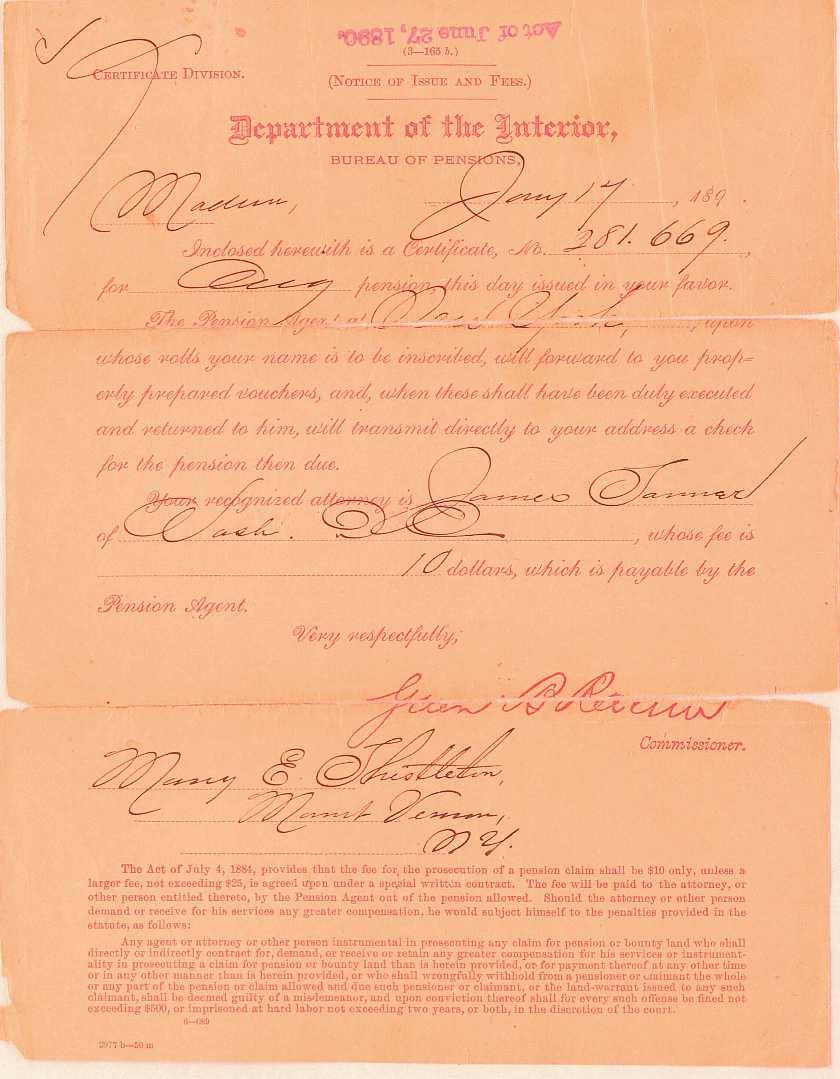 Act of June 27, 1890.
(3—165 b.)
CERTIFICATE DIVISION.
(NOTICE OF ISSUE AND FEES.)
Department of the Interior,
BUREAU OF PENSIONS,
Madam, Jany 17, 189 .
Inclosed herewith is a Certificate, No. 281.669.,
for pension this day issued in your favor.
The Pension Agent at New York, , upon
whose rolls your name is to be inscribed, will forward to you prop=
erly prepared vouchers, and, when these shall have been duly executed
and returned to him, will transmit directly to your address a check
for the pension then due.
Your recognized attorney is James Tanner
of Wash. DC , whose fee is
10 dollars, which is payable by the
Pension Agent.
Very respectfully,
Green B Raum
Commissioner.
Mary E. Thistleton,
Mount Vernon,
N Y.
The Act of July 4, 1884, provides that the fee for the prosecution of a pension claim shall be $10 only, unless a
larger fee, not exceeding $25, is agreed upon under a special written contract. The fee will be paid to the attorney, or
other person entitled thereto, by the Pension Agent out of the pension allowed. Should the attorney or other person
demand or receive for his services any greater compensation, he would subject himself to the penalties provided in the
statute, as follows:
Any agent or attorney or other person instrumental in prosecuting any claim for pension or bounty land who shall
directly or indirectly contract for, demand, or receive or retain any greater compensation for his services or instrument-
ality in prosecuting a claim for pension or bounty land than is herein provided, or for payment thereof at any other time
or in any other manner than is herein provided, or who shall wrongfully withhold from a pensioner or claimant the whole
or any part of the pension or claim allowed and due such pensioner or claimant, or the land-warrant issued to any such
claimant, shall be deemed guilty of a misdemeanor, and upon conviction thereof shall for every such offense be fined not
exceeding $500, or imprisoned at hard labor not exceeding two years, or both, in the discretion of the court.
6—089
2977 b—50 m